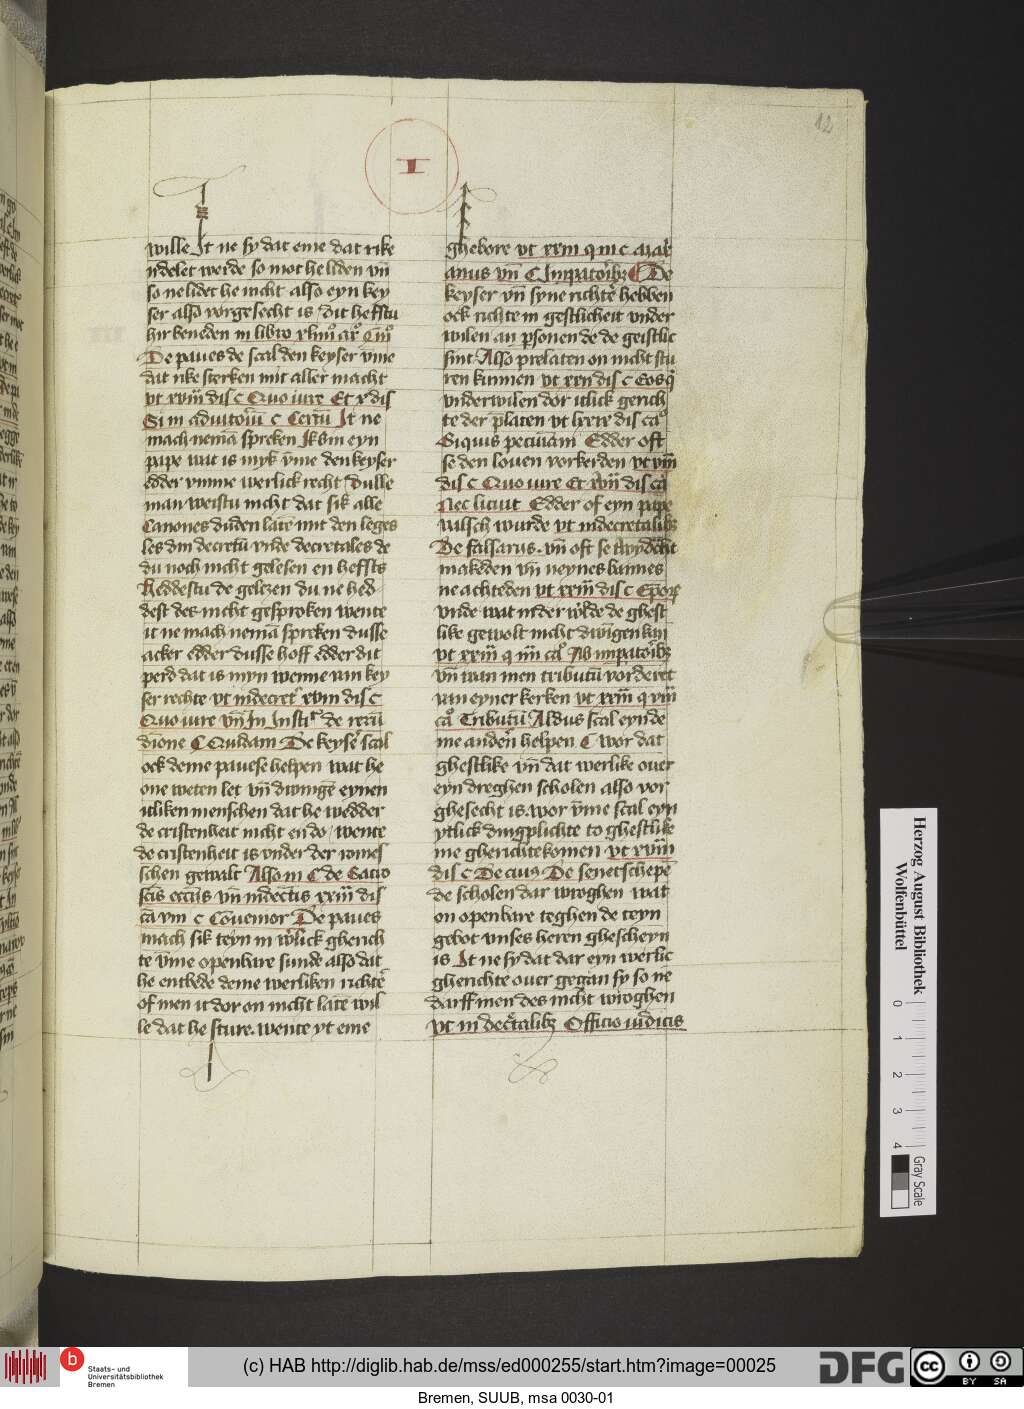 12
I
wille It ne sy dat eme dat rike
ndelet werde so mot he liden vn̄
so ne lidet he nicht also eyn key
ser also vorgesecht is dit hefstu
hir beneden in libro
De paues de scal den keyser vm̄e
dat rike sterken mit aller macht
vt xviij dis c Quo iure Et x dis
Si in adiutoriū c Certū It ne
mach nemā spreken
pape wat is myk vm̄e den keyser
edder vmme werlick recht dulle
man weistu nicht dat sik alle
Canones dulden latē mit den leges
les din decretū vnde decretales de
du noch nicht gelesen en hefsts
Heddestu de gelezen du ne hed
dest des nicht gesproken wente
it ne mach nemā spreken dusse
acker edder dusse hoff edder dit
perd dat is myn wenne van key
ser rechte vt indecret xviij dis c
Quo iure vn̄ In Insti de rerū
diōne C Quidam De keyser scal
ock deme pauese helpen wat he
one weten let vn̄ dwingē eynen
itliken menschen dat he wedder
de cristenheit nicht en do wente
de cristenheit is vnder der romes
schen gewalt Also in C de Sacro
scīs eccīis vn̄ indectis xxiij dis
De paues
mach sik teyn in wlick gherich
te vm̄e openbare sunde also dat
he entbede deme werliken richtē
of men it dor on nicht latē wil
le dat he sture. wente yt eme
ghebore vt xxiij q
anus vn̄ C Inpatoribz C De
keyser vn̄ syne richtē hebben
ock richte in gestlicheit vnder
wilen an psonen de de geistlic
sint Also prelaten on nicht stu
ren kunnen vt xxij dis c Eos q
vnderwilen dor itlick gerich
te der platen vt lxxxv dis ca
Siquis pecuniam Edder oft
se den louen vorkerden vt viij
dis c Quo iure Et xviij dis ca
Nec licuit Edder of eyn pape
valsch wurde vt indecretalibz
De falsarus. vn̄ oft se twydecht
makeden vn̄ neynes bannes
ne achteden vt xxiij dis c
vnde wat nider wlde de ghest
like gewolt nicht dwingen kan
vt xxiij q iiij ca Ab inpatoribz
vn̄ wan men tributū vorderet
van eyner kerken vt xxiij q viij
ca Tributū Aldus scal eyn de
me anderen helpen C wor dat
ghestlike vn̄ dat werlike ouer
eyn dreghen scholen also vor
ghesecht is. wor vm̄e scal eyn
ytlick dingplichte to ghestlike
me gherichte komen vt xviij
dis c De senetschepē
de scholen dar wroghen wat
on openbare teghen de teyn
gebot vnses heren ghescheyn
is It ne sy dat dar eyn werlic
gherichte ouer gegan sy so ne
darff men des nicht wroghen
vt in dectalibz Officio iudicis
Herzog August Bibliothek
Wolfenbüttel
0 1 2 3 4
Gray Scale
b
Staats- und
Universitätsbibliothek
Bremen
(c) HAB http://diglib.hab.de/mss/ed000255/start.htm?image=00025
DFG
cc
BY SA
Bremen, SUUB, msa 0030-01